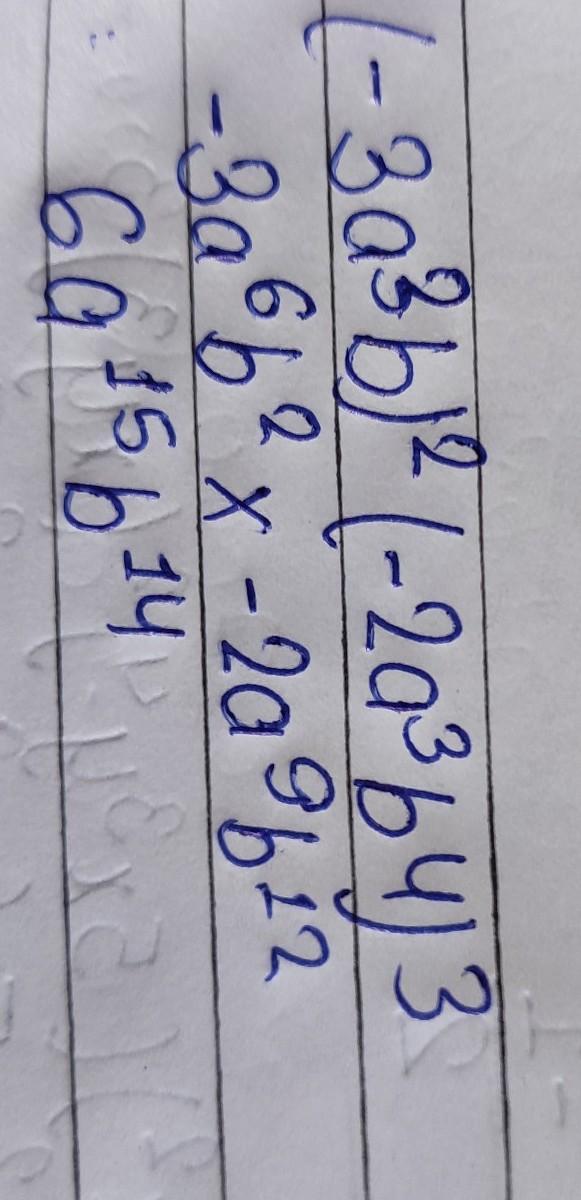 (-3a³b)² (-2a³b⁴)³
-3a⁶b² x -2a⁹b¹²
6a¹⁵b¹⁴